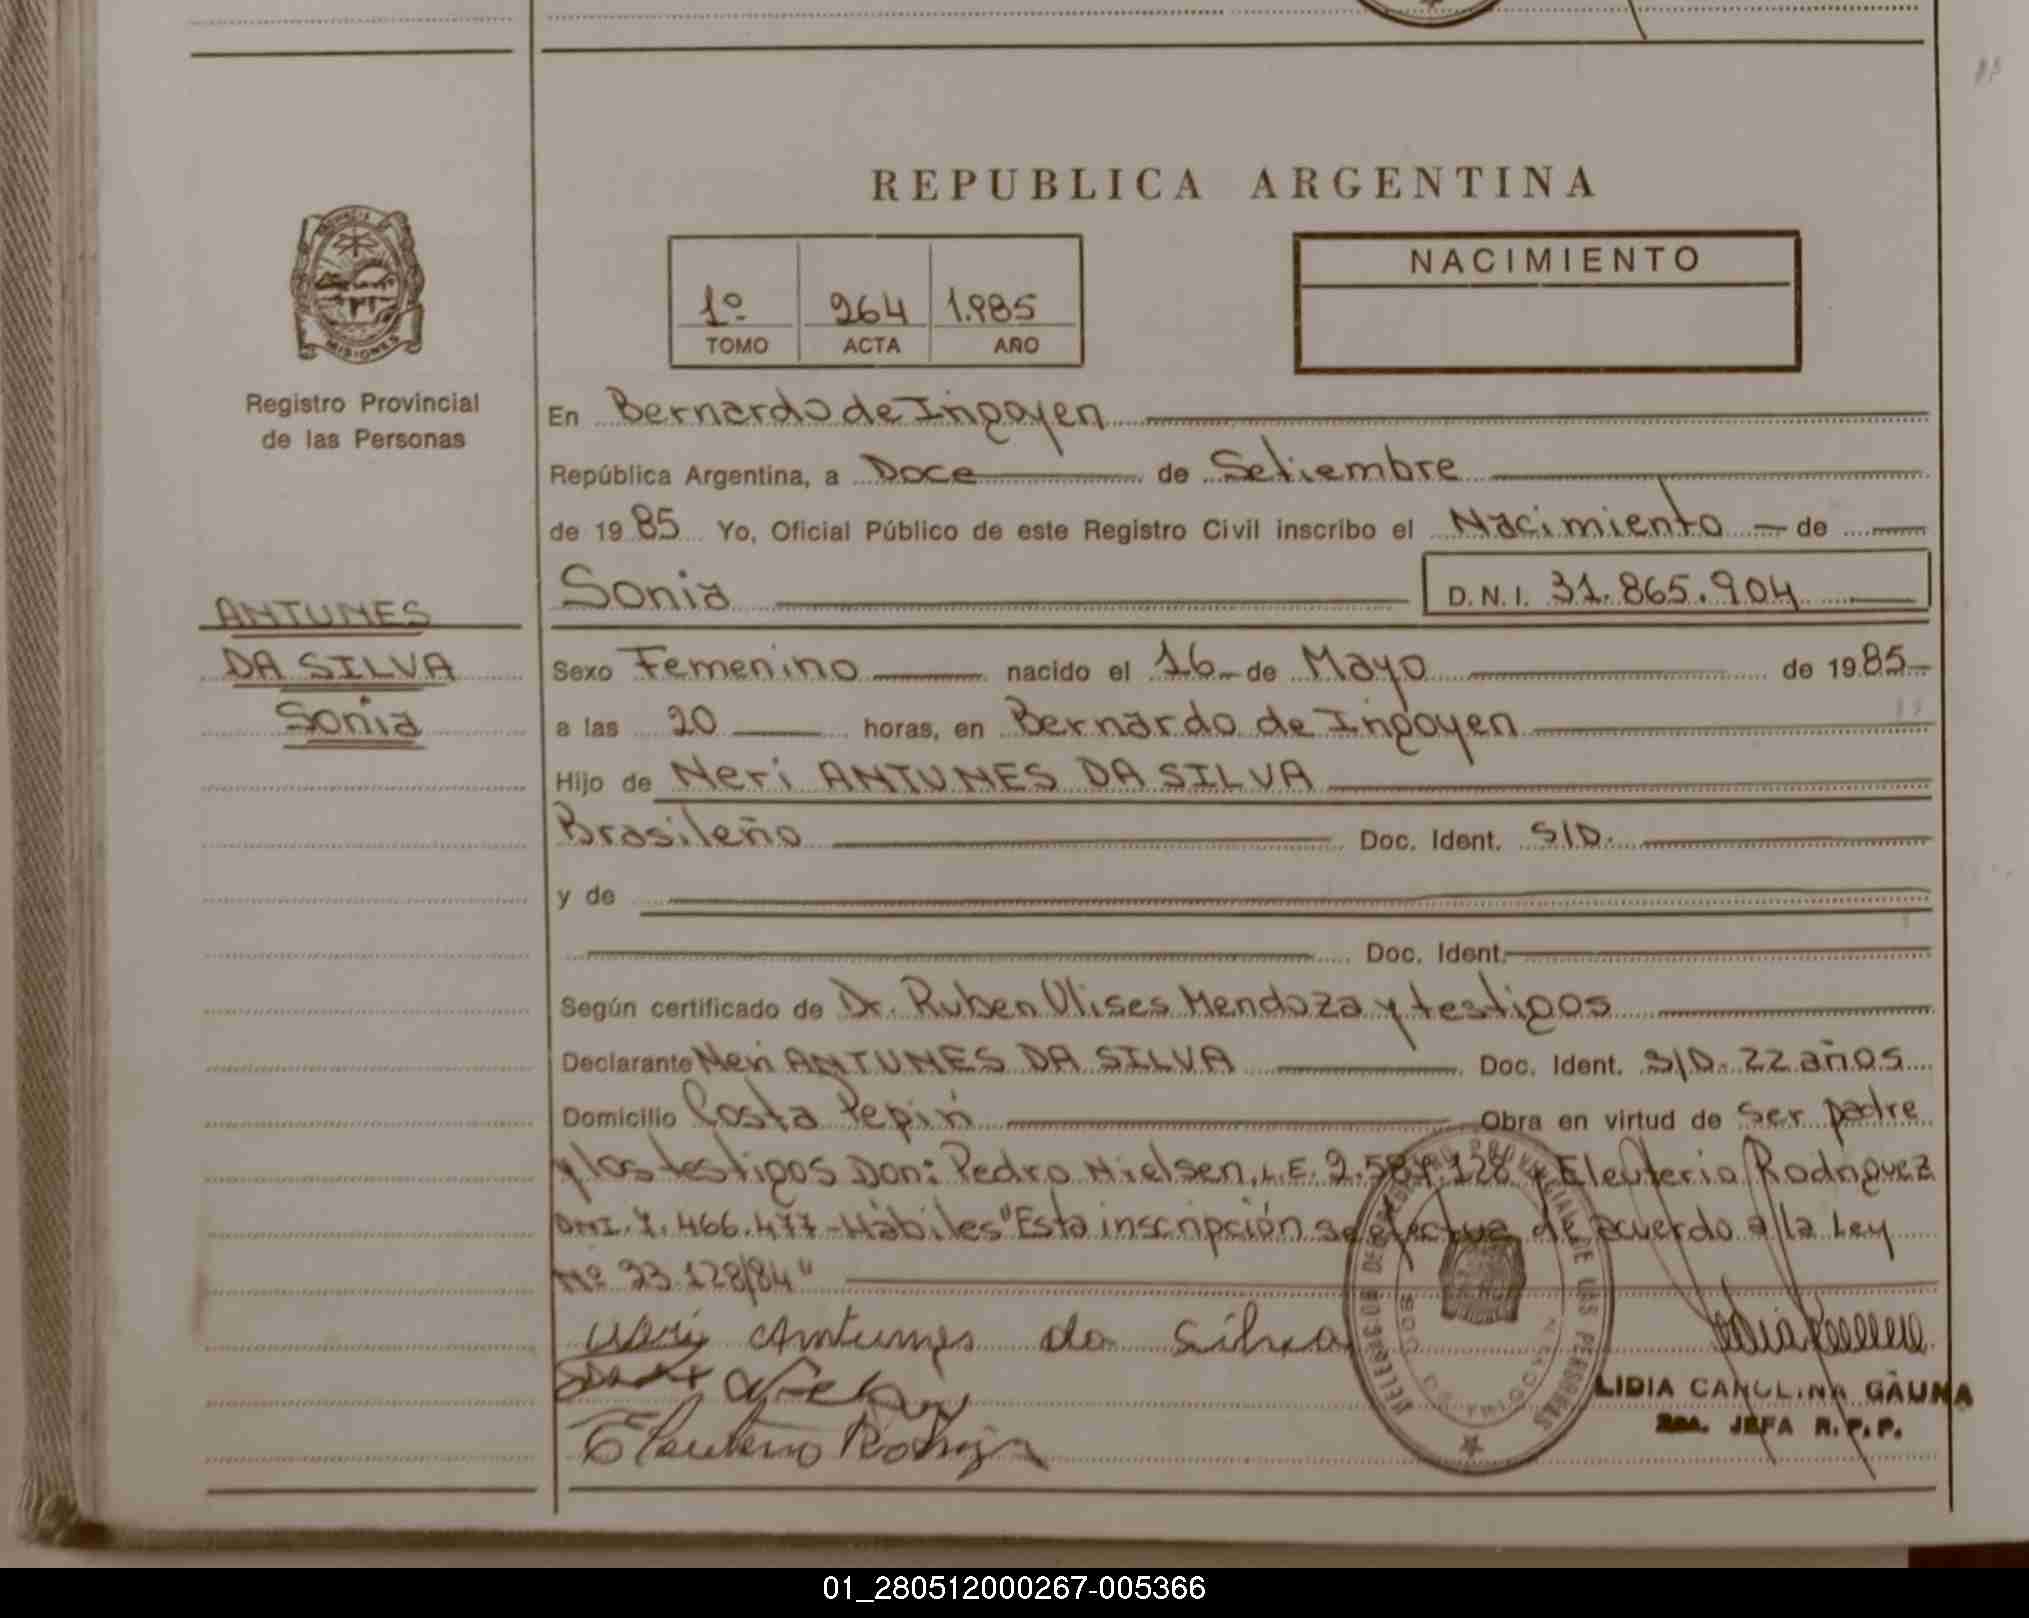 REPUBLICA ARGENTINA
PROVINCIA
MISIONES
Registro Provincial
de las Personas
1º 264 1.985
TOMO ACTA AÑO
NACIMIENTO
En Bernardo de Irigoyen
República Argentina, a Doce de Setiembre
de 19 85 Yo, Oficial Público de este Registro Civil inscribo el Nacimiento de
Sonia D.N.I. 31.865.904
ANTUNES
DA SILVA
Sonia
Sexo Femenino nacido el 16 de Mayo de 19 85
a las 20 horas, en Bernardo de Irigoyen
Hijo de Neri ANTUNES DA SILVA
Brasileño Doc. Ident. S/D.
y de
Doc. Ident.
Según certificado de Dr. Ruben Ulises Mendoza y testigos
Declarante Neri ANTUNES DA SILVA Doc. Ident. S/D. 22 años
Domicilio Costa Pepiri Obra en virtud de ser padre
y los testigos Don: Pedro Nielsen, L.E. y Eleuterio Rodriguez
DNI. 7.466.477-Hábiles "Esta inscripción se efectua de acuerdo a la Ley
Nº 23.128/84"
Neri Antunes da Silva
Eleuterio
LIDIA CAROLINA GAUNA
JEFA R.P.P.
01_280512000267-005366